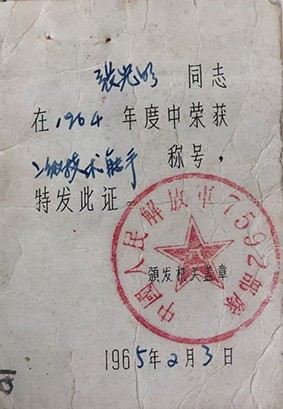 张光明 同志
在1964 年度中荣获
二级技术能手 称号，
特发此证。
中國人民解放軍7592部隊
頒发机关盖章
1965年2月3日